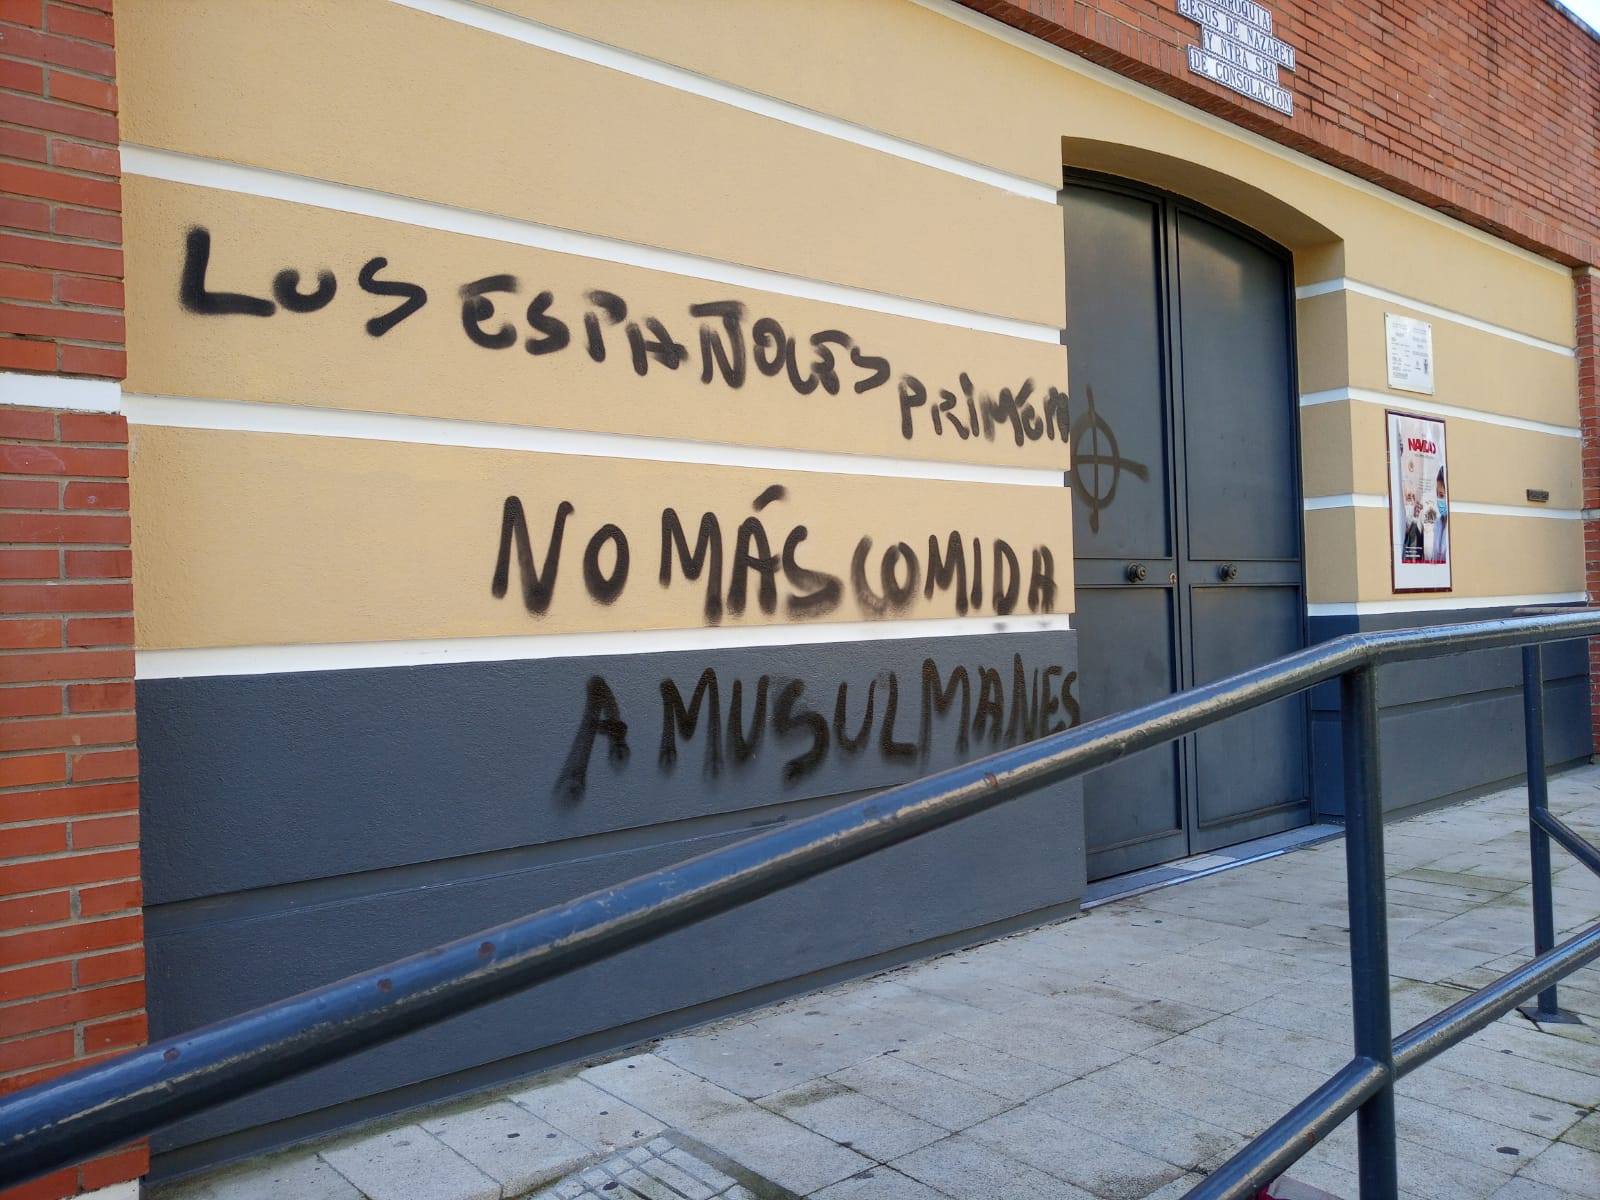 JESUS DE NAZARET
Y NTRA SRA
DE CONSOLACIÓN
LOS ESPAÑOLES PRIMERO
NO MÁS COMIDA
A MUSULMANES
NAVIDAD